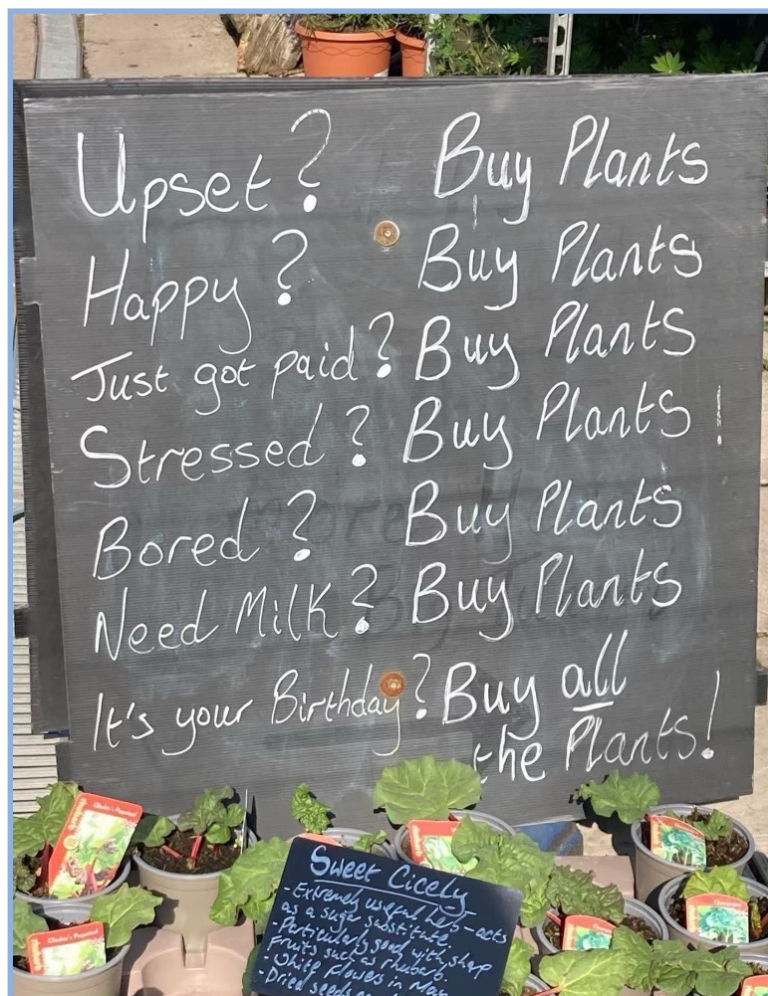 Upset? Buy Plants
Happy? Buy Plants
Just got paid? Buy Plants
Stressed? Buy Plants
Bored? Buy Plants
Need Milk? Buy Plants
It's your Birthday? Buy all
the Plants!
Sweet Cicely
- Extremely useful herb - acts
as a sugar substitute.
- Particularly good with sharp
fruits such as rhubarb.
- White flowers in May
- Dried seeds